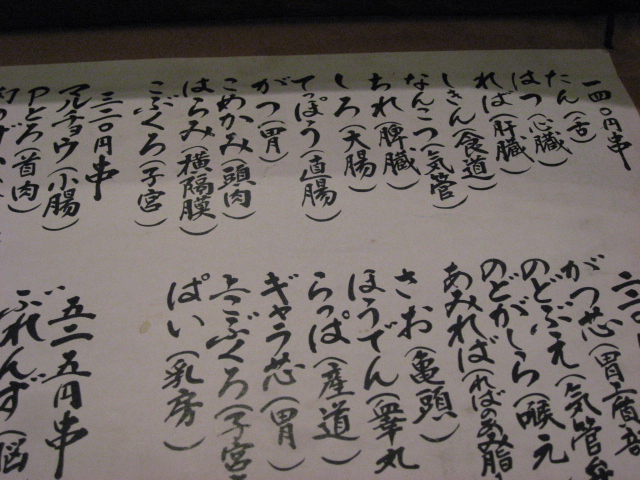 一四〇円串
たん(舌)
はつ(心臓)
れば(肝臓)
しきん(食道)
なんこつ(気管)
ちれ(脾臓)
しろ(大腸)
てっぽう(直腸)
がつ(胃)
こめかみ(頭肉)
はらみ(横隔膜)
こぶくろ(子宮)
三二〇円串
マルチョウ(小腸)
Pとろ(首肉)
がつ芯(胃
のどぶえ(気管
のどがしら(喉元
あみれば(ればのあみ脂
さお(亀頭)
ほうでん(睾丸
らっぱ(産道)
ギャラ芯(胃)
上こぶくろ(子宮
ぱい(乳房)
五二五円串
ぶれんず(脳